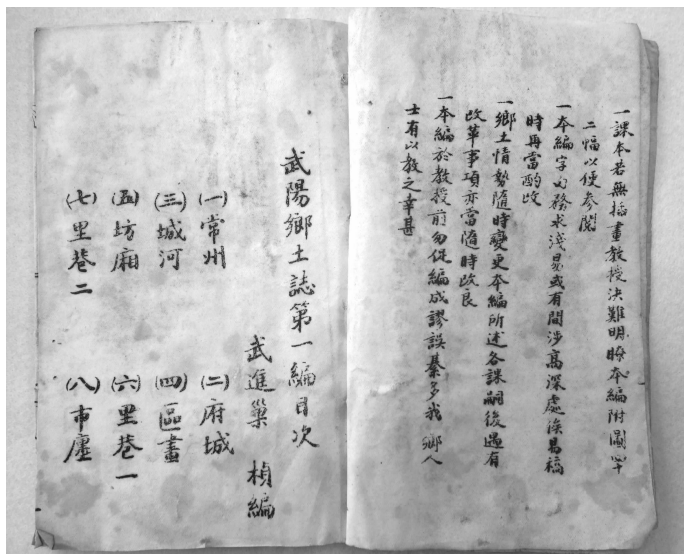 一課本若無插畫教授決難明瞭本編附圖四十
二幅以便參閱
一本編字句務求淺易或有間涉高深處俟易稿
時再當酌改
一鄉土情勢隨時變更本編所述各課嗣後遇有
改革事項亦當隨時改良
一本編於教授前匆促編成謬誤綦多我 鄉人
士有以教之幸甚
武陽鄉土誌第一編目次
武進巢 楨編
(一)常州 (二)府城
(三)城河 (四)區畫
(五)坊廂 (六)里巷一
(七)里巷二 (八)市廛